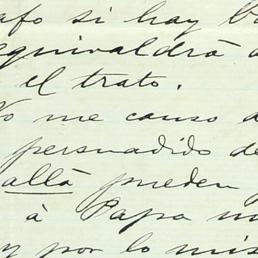 afo si hay
equivaldrá a
el trato.
No me causo d
persuadido de
allá pueden
à Papa
y por lo mis